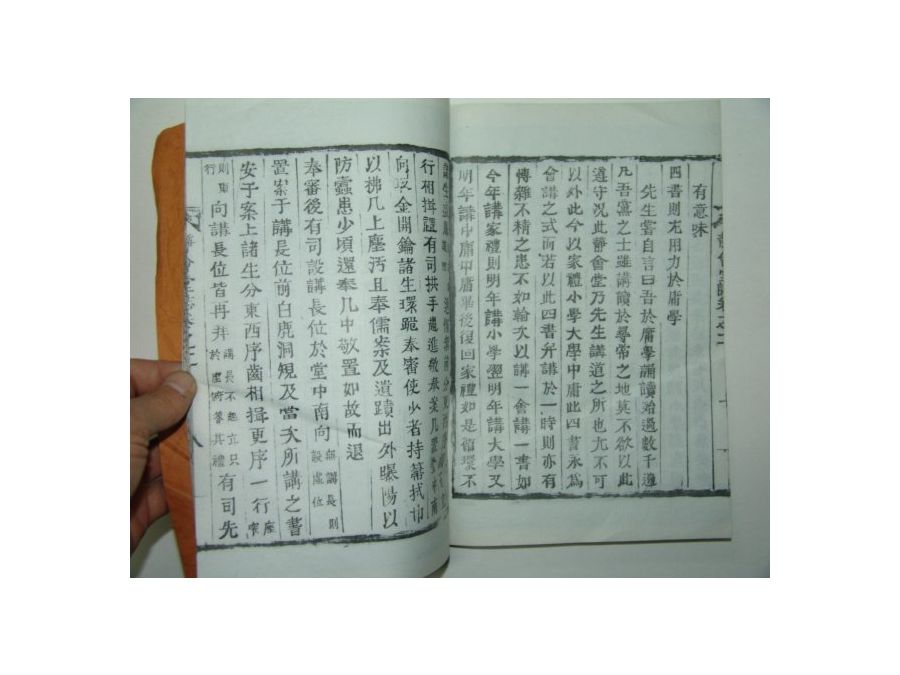 有意味
四書則尤用力於庸學
先生嘗自言曰吾於庸學誦讀殆過數千遍
凡吾黨之士雖講讀於尋常之地莫不欲以此
遵守况此靜會堂乃先生講道之所也尤不可
以外此今以家禮小學大學中庸此四書永爲
會講之式而若以此四書幷講於一時則亦有
傳雜不精之患不如輪次以講一會講一書如
今年講家禮則明年講小學翌明年講大學又
明年講中庸中庸畢後復回家禮如是循環不
行相揖禮有司拱手趨進敬奉
向取金開鑰諸生環跪奉審使少者持箒拭巾
以拂几上塵汚且奉儒案及遺蹟出外曝陽以
防蠹患少頃還奉几中敬置如故而退
奉審後有司設講長位於堂中南向無講長則設虛位
置案于講長位前白鹿洞規及當次所講之書
安于案上諸生分東西序齒相揖更序一行座定
則東行向講長位皆再拜講長不起立只於虛府答其禮有司先